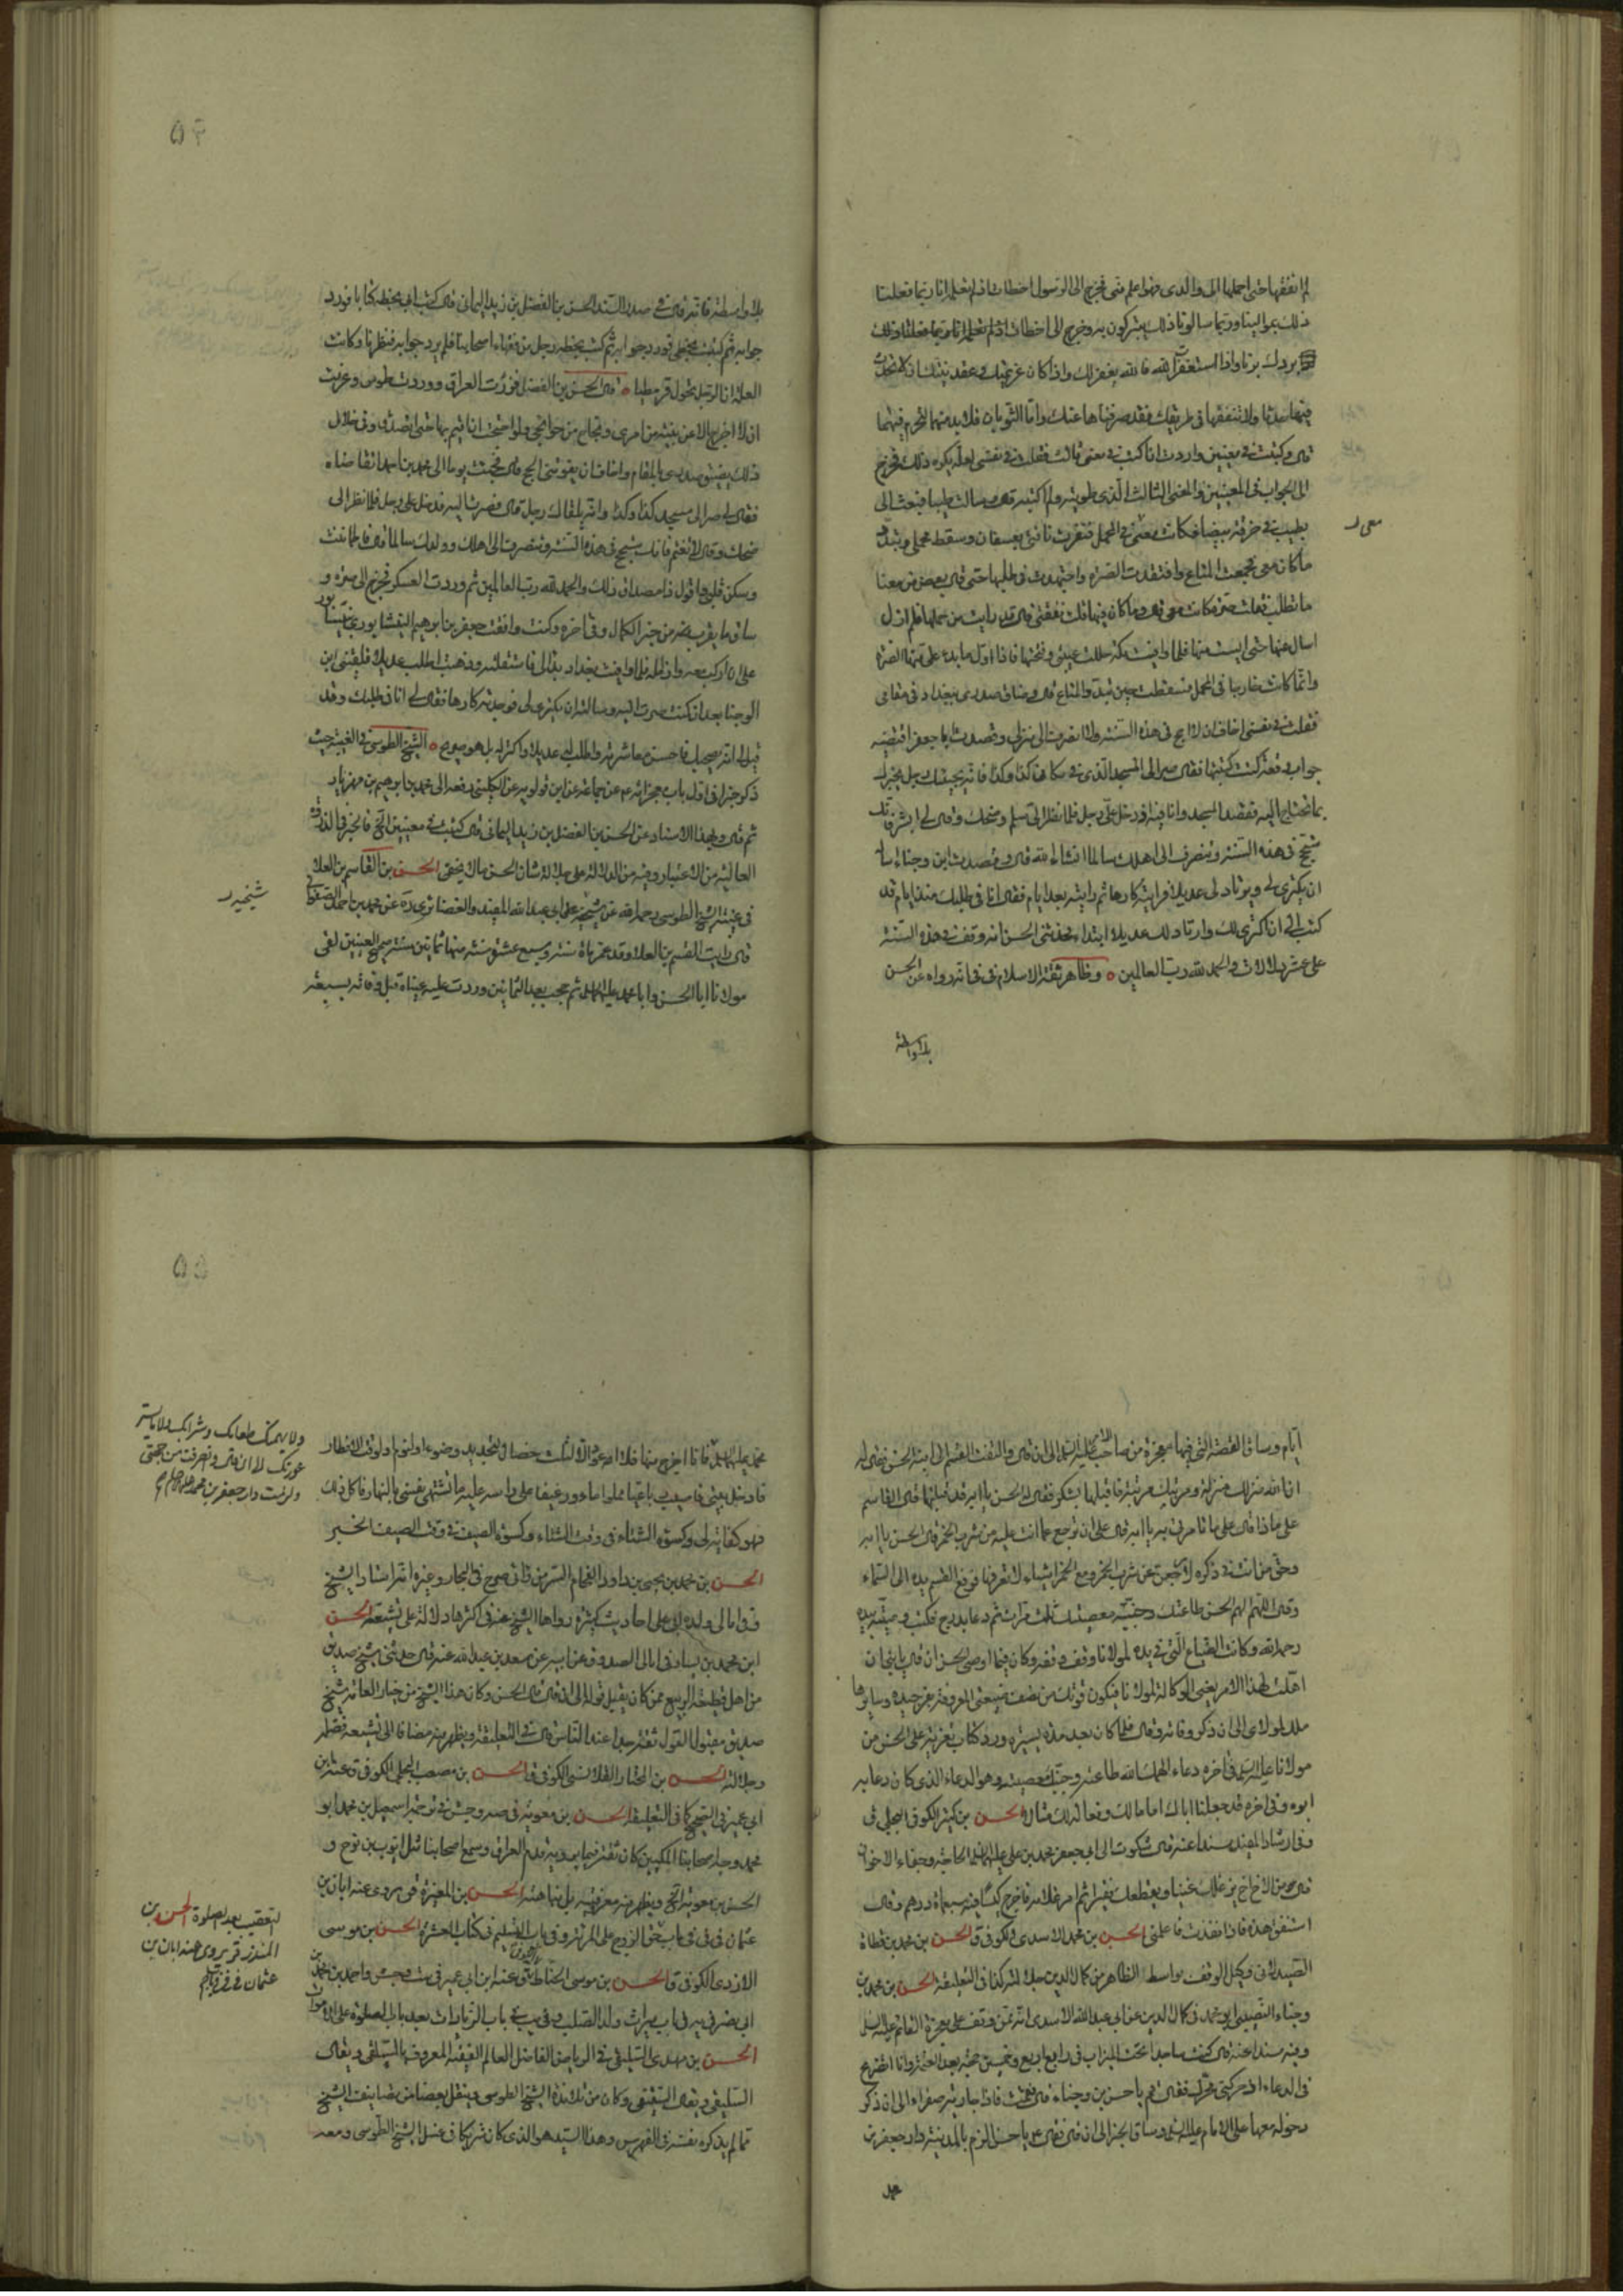 لم انفقها حتى احملها الى والدى فهو اعلم منى فخرج الى الرسول اخطات اذ لم تعلم انا ربما فعلنا
ذلك بموالينا وربما سالونا ذلك يتبركون به وخرج الى اخطات
بردك برنا واذا استغفرت الله فالله يغفر لك واذا كان عزيمتك وعقد نيتك ان لا تحدث
فيها حدثا ولا تنفقها فى طريقك فقد صرفناها عنك واما الثوبان فلا بد منهما لتحرم فيهما
قال وكتبت فى معنيين واردت ان اكتب فى معنى ثالث فقلت فى نفسى لعله يكره ذلك فخرج
الى الجواب فى المعنيين والمعنى الثالث الذى طويته ولم اكتبه قال وسالت طيبا فبعث الى
بطيب فى خرقة بيضاء فكانت معى فى المحمل فنفرت ناقتى بعسفان وسقط محملى وتبدد
ما كان معى فجمعت المتاع وافتقدت الصرة واجتهدت فى طلبها حتى قال بعض من معنا
ما تطلب فقلت صرة كانت معى قال وما كان فيها قلت نفقتى قال قد رايت من حملها فلم ازل
اسال عنها حتى ايست منها فلما وافيت مكة حللت عيبتى وفتحتها فاذا اول ما بدء على منها الصرة
وانما كانت خارجا فى المحمل فسقطت حين تبدد المتاع قال وضاق صدرى ببغداد فى مقامى
فقلت فى نفسى اخاف ان لا احج فى هذه السنة ولا انصرف الى منزلى وقصدت ابا جعفر اقتضيه
جواب رقعة كنت كتبتها فقال صر الى المسجد الذى فى مكان كذا وكذا فانه يجيئك رجل يخبرك
بما تحتاج اليه فقصدت المسجد وانا فيه اذ دخل على رجل فلما نظر الى سلم وضحك وقال لى ابشر فانك
ستحج فى هذه السنة وتنصرف الى اهلك سالما انشاء الله قال وقصدت ابن وجناء اسأله
ان يكترى لى ويرتاد لى عديلا فرايته كارها ثم رايته بعد ايام فقال انا فى طلبك منذ ايام قد
كتب الى ان اكترى لك وارتاد لك عديلا ابتداء فحدثنى الحسن انه وقف فى هذه السنة
على عشر دلالات والحمد لله رب العالمين وظاهر ثقة الاسلام فى فانه رواه عن الحسن
بلا واسطة
٥٤
بلا واسطة فانه قال فى صدر السند الحسن بن الفضل بن زيد اليمانى قال كتب ابى بخطه كتابا فورد
جوابه ثم كتبت بخطى فورد جوابه ثم كتب بخطه رجل من فقهاء اصحابنا فلم يرد جوابه فنظرنا وكانت
العلة ان الرجل تحول قرمطيا قال الحسن بن الفضل فزرت العراق ووردت طوس وعزمت
ان لا اخرج الا عن بينة من امرى ونجاح من حوائجى ولو احتجت ان اقيم بها حتى اتصدق وفى خلال
ذلك يضيق صدرى بالمقام واخاف ان يفوتنى الحج قال فجئت يوما الى محمد بن احمد اتقاضاه
فقال لى صر الى مسجد كذا وكذا وانه يلقاك رجل قال فصرت اليه فدخل على رجل فلما نظر الى
ضحك وقال لا تغتم فانك ستحج فى هذه السنة وتنصرف الى اهلك وولدك سالما قال فاطمأننت
وسكن قلبى واقول ذا مصداق ذلك والحمد لله رب العالمين ثم وردت العسكر فخرج الى صرة و
ساق ما يقرب منه من خبر الكمال وفى اخره وكنت وافقت جعفر بن ابرهيم النيشابورى بنيسابور
على ان اركب معه وازامله فلما وافيت بغداد بدا لى فاستقلته وذهبت اطلب عديلا فلقينى ابن
الوجنا بعد ان كنت صرت اليه وسالته ان يكترى لى فوجدته كارها فقال لى انا فى طلبك وقد
قيل لى انه يصحبك فاحسن معاشرته واطلب له عديلا واكتر له بل هو صريح الشيخ الطوسى فى الغيبة حيث
ذكر خبرا فى اول باب معجزاته عم عن جماعة عن ابن قولويه عن الكلينى رفعه الى محمد بن ابرهيم بن مهزيار
ثم قال وبهذا الاسناد عن الحسن بن الفضل بن زيد اليمانى قال كتبت فى معنيين الخ فالخبر فى الذروة
العالية من الاعتبار وفيه من الدلالة على جلالة شان الحسن مالا يخفى الحسن بن القاسم بن العلا
فى غيبة الشيخ الطوسى رحمه الله عن شيخيه على ابى عبدالله المفيد والغضائرى ره عن محمد بن احمد الصفوانى
قال رايت القسم بن العلا وقد عمر ماة سنة وسبع عشرة سنة منها ثمانين سنة صحيح العينين لقى
مولانا ابا الحسن وابا محمد عليهما السلم ثم حجب بعد الثمانين وردت عليه عيناه قبل وفاته بسبعة
ايام وساق القصة التى فيها معجزة من صاحب الامر عليه السلم الى ان قال والتفت القسم الى ابنه الحسن فقال له
ان الله منزلك منزلة ومرتبك مرتبة فاقبلها بشكر فقال له الحسن يا ابه قد قبلتها قال القاسم
على ماذا قال على ما تامرنى به يا ابه قال على ان ترجع عما انت عليه من شرب الخمر قال الحسن يا ابه
وحق من انت فى ذكره لارجعن عن شرب الخمر ومع الخمر اشياء لا تعرفها فرفع القسم يده الى السماء
وقال اللهم الهم الحسن طاعتك وجنبه معصيتك ثلث مرات ثم دعا بدرج فكتب وصيته بيده
رحمه الله وكانت الضياع التى فى يده لمولانا وقف وقفه وكان فيما اوصى الحسن ان قال يا بنى ان
اهلت لهذا الامر يعنى الوكالة لمولانا فيكون قوتك من نصف ضيعتى المعروفة بفرجيده وسايرها
ملك لمولاى الى ان ذكر وفاته وقال فلما كان بعد مدة يسيرة ورد كتاب تعزية على الحسن من
مولانا عليه السلم فى اخره دعاء الهمك الله طاعته وجنبك معصيته وهو الدعاء الذى كان دعا به
ابوه وفى اخره قد جعلنا اباك اماما لك وفعاله لك مثالا الحسن بن كثير الكوفى البجلى ق
وفى ارشاد المفيد مسندا عنه قال شكوت الى ابى جعفر محمد بن على عليهما السلم الحاجة وجفاء الاخوان
قال بئس الاخ اخ يرعاك غنيا ويقطعك فقيرا ثم امر غلامه فاخرج كيسا فيه سبعماة درهم وقال
استنفق هذه فاذا نفدت فاعلمنى الحسن بن محمد الاسدى الكوفى ق الحسن بن محمد بن قطاة
الصيدلانى وكيل الوقف بواسط الظاهر من كمال الدين جلالته كذا فى التعليقة الحسن بن محمد بن
وجناء النصيبى ابو محمد فى كمال الدين عن ابى عبدالله الاسدى انه ممن وقف على معجزة القائم عليه السلم
وفيه مسندا عنه قال كنت ساجدا تحت الميزاب فى رابع اربع وخمسين حجة بعد العتمة وانا اتضرع
فى الدعاء اذ حركنى محرك فقال قم يا حسن بن وجناء قال فقمت فاذا جارية صفراء الى ان ذكر
دخوله معها على الامام عليه السلم وساق الخبر الى ان قال فقال عم يا حسن الزم بالمدينة دار جعفر بن
محمد
٥٥
محمد عليهما السلم فانا اخرج منها فلا اعود الا لثلث خصال لتجديد وضوء او لنوم او لوقت الافطار
فادخل بيتى فاصيب رباعيا مملوا ماء ورغيفا على راسه عليه ما تشتهى نفسى بالنهار فاكل ذلك
فهو كفاية لى وكسوة الشتاء فى وقت الشتاء وكسوة الصيف فى وقت الصيف الخبر
الحسن بن محمد بن يحيى بن داود الفحام السر من رائى صرح فى البحار وغيره انه استاد الشيخ
وفى امالى ولده ابى على احاديث كثيرة رواها الشيخ عنه فى اكثرها دلالة على تشيعه الحسن
ابن محمد بن بسار فى امالى الصدوق عن ابيه عن سعد بن عبدالله عنه قال حدثنى شيخ صديق
من اهل قطيعة الربيع ممن كان يقبل قوله الى ان قال قال الحسن وكان هذا الشيخ من خيار العامة شيخ
صديق مقبول القول ثقة جدا عند الناس قال فى التعليقة ويظهر منه مضافا الى تشيعه فضله
وجلالته الحسن بن المختار القلانسى الكوفى ق الحسن بن مصعب البجلى الكوفى ق عنه ابن
ابى عمير فى الصحيح كما فى التعليقة الحسن بن معوية فى صه وجش فى ترجمة اسمعيل بن محمد ابو
محمد وجه اصحابنا المكيين كان ثقة فيما يرويه قدم العراق وسمع اصحابنا مثل ايوب بن نوح و
الحسن بن معوية الخ ويظهر منه معروفيته بل نباهته الحسن بن المغيرة ق يروى عنه ابان بن
عثمان فى فى فى باب حق الزوج على المرئة وفى باب التسليم فى كتاب العشرة الحسن بن موسى
الازدى الكوفى ق الحسن بن موسى الحناط الكوفى ق عنه ابن ابى عمير فى ست وجش واحمد بن محمد بن
ابى نصر فى يب فى باب ميراث ولد الصلب وفى يب فى باب الزيادات بعد باب الصلوة على الاموات
الحسن بن مهدى السليقى فى الرياض الفاضل العالم الفقيه المعروف بالسيلقى ويقال
السليقى ويقال السيقى وكان من تلامذة الشيخ الطوسى وينقل بعضا من تصانيف الشيخ
مما لم يذكره نفسه فى الفهرس وهذا السيد هو الذى كان شريكا فى غسل الشيخ الطوسى ومعه
ولا يهمنك طعامك وشرابك ولا ما يستر
عورتك الى ان قال وانصرفت من حجتى
ولزمت دار جعفر بن محمد عليهما السلم
لتعقيب بعد الصلوة الحسن بن
المنذر ق يروى عنه ابان بن